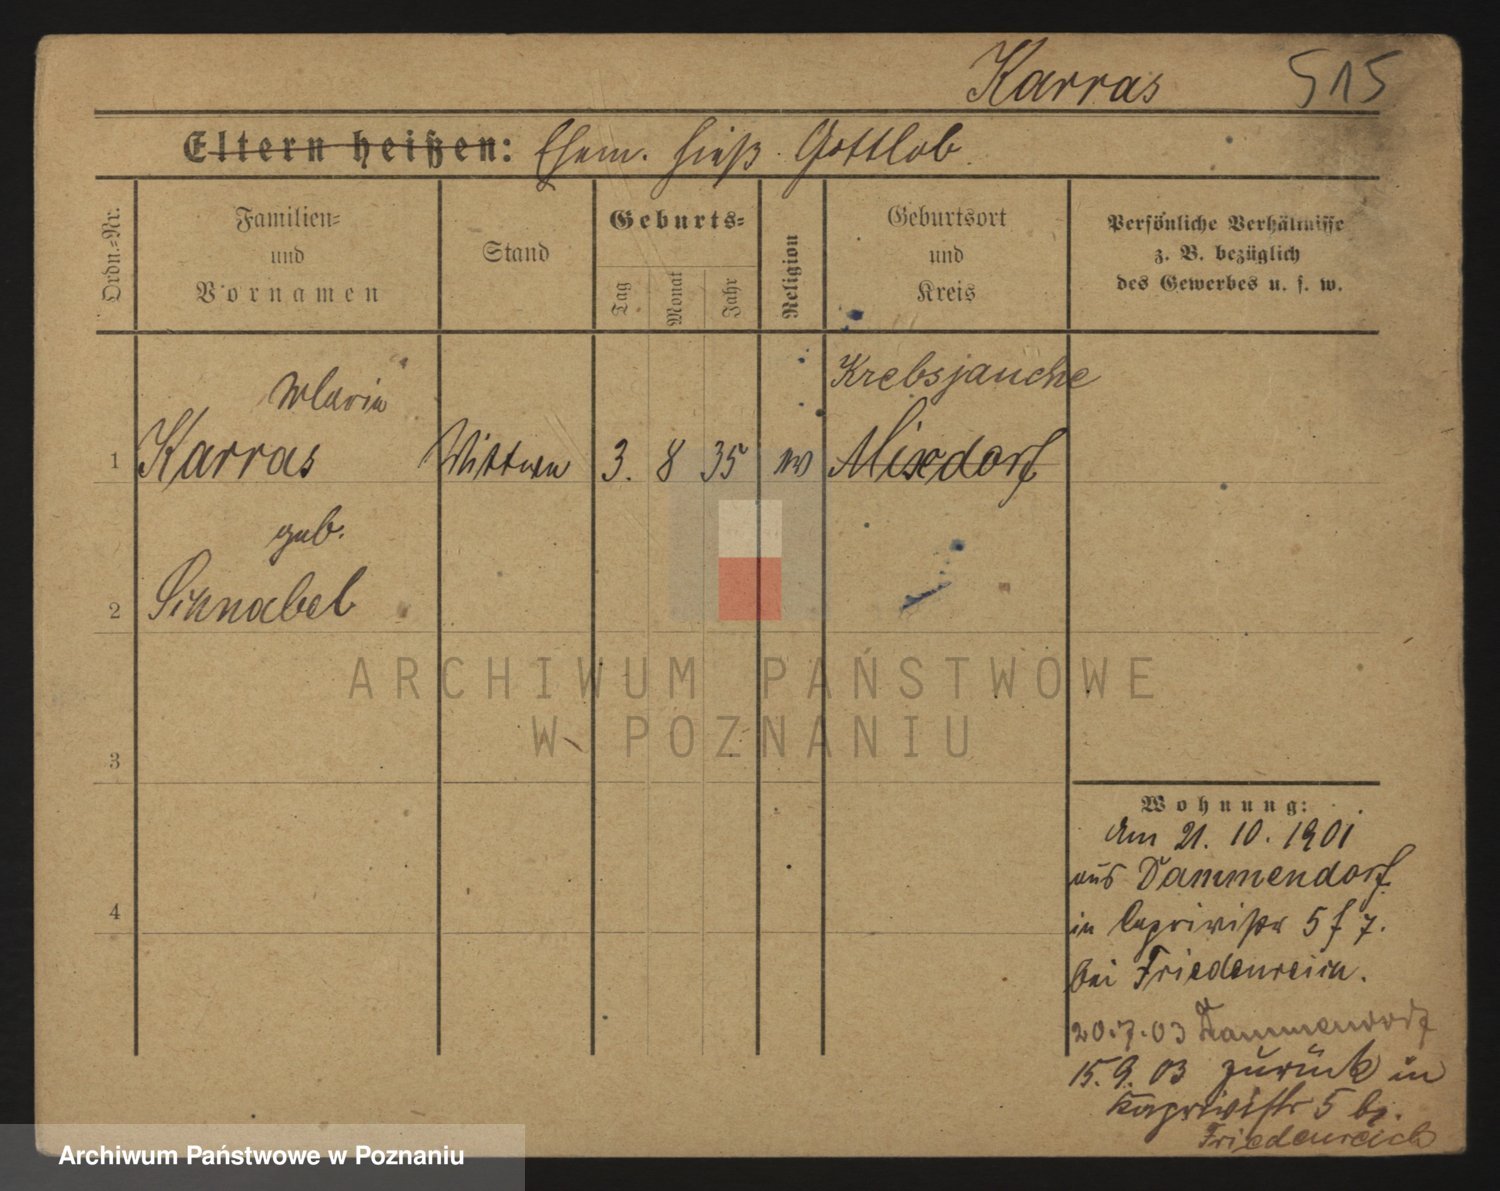 Karras 515
Eltern heißen: Ehem. hieß Gottlob
Ordn.-Nr.
Familien-
und
Vornamen
Stand
Geburts-
Tag
Monat
Jahr
Religion
Geburtsort
und
Kreis
Persönliche Verhältnisse
z. B. bezüglich
des Gewerbes u. s. w.
Krebsjauche
Maria
1 Karras Wittwe 3. 8 35 ev Mixdorf
geb.
2 Schnabel
3
4
ARCHIWUM PAŃSTWOWE
W POZNANIU
Wohnung:
Am 21. 10. 1901
aus Dammendorf
in Caprivistr 5 f 7.
bei Friedenreich.
20.7.03 Dammendorf
15.9.03 zurück in
Kaprivistr 5 bei
Friedenreich
Archiwum Państwowe w Poznaniu